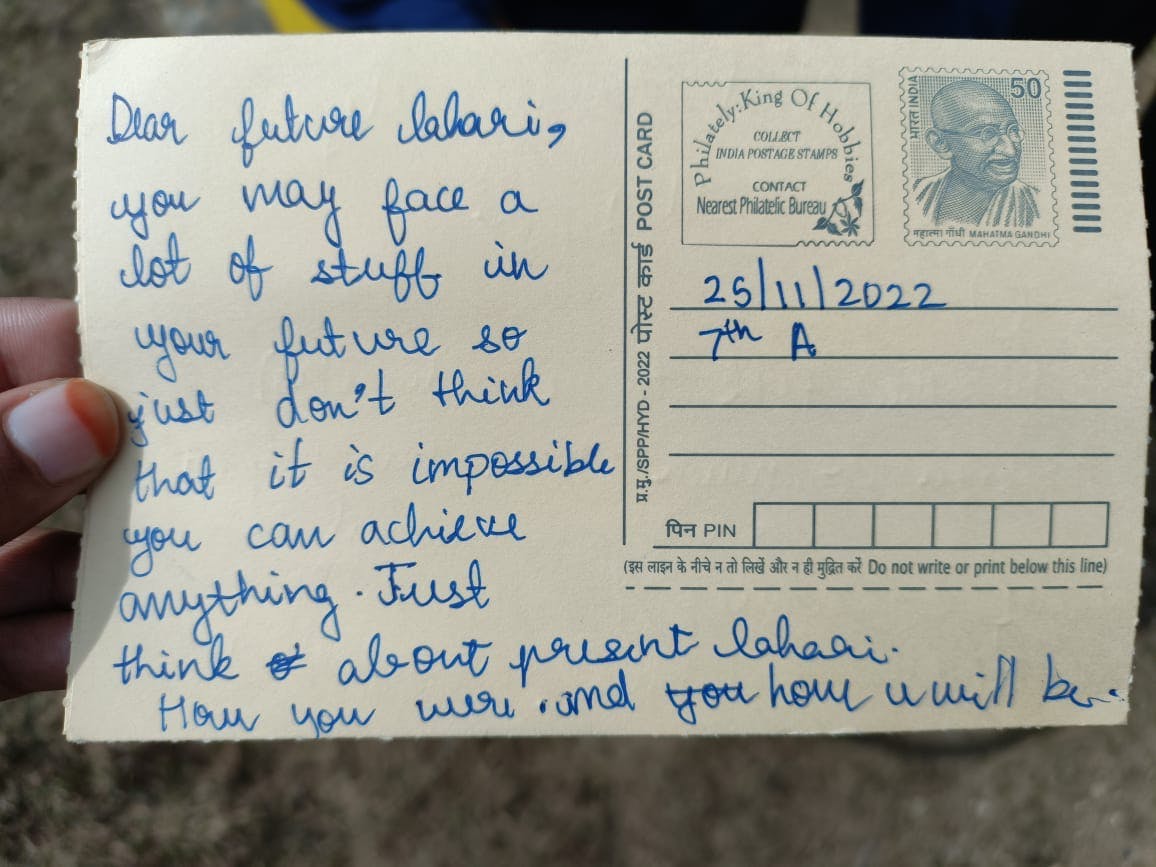 Dear future lahari,
you may face a
lot of stuff in
your future so
just don't think
that it is impossible
you can achieve
anything. Just
think of about present lahari.
How you were . and you how u will be.
प्र.मु./SPP/HYD - 2022 पोस्ट कार्ड POST CARD
Philately: King Of Hobbies
COLLECT
INDIA POSTAGE STAMPS
CONTACT
Nearest Philatelic Bureau
भारत INDIA
50
महात्मा गाँधी MAHATMA GANDHI
25/11/2022
7th A
पिन PIN
(इस लाइन के नीचे न तो लिखें और न ही मुद्रित करें Do not write or print below this line)